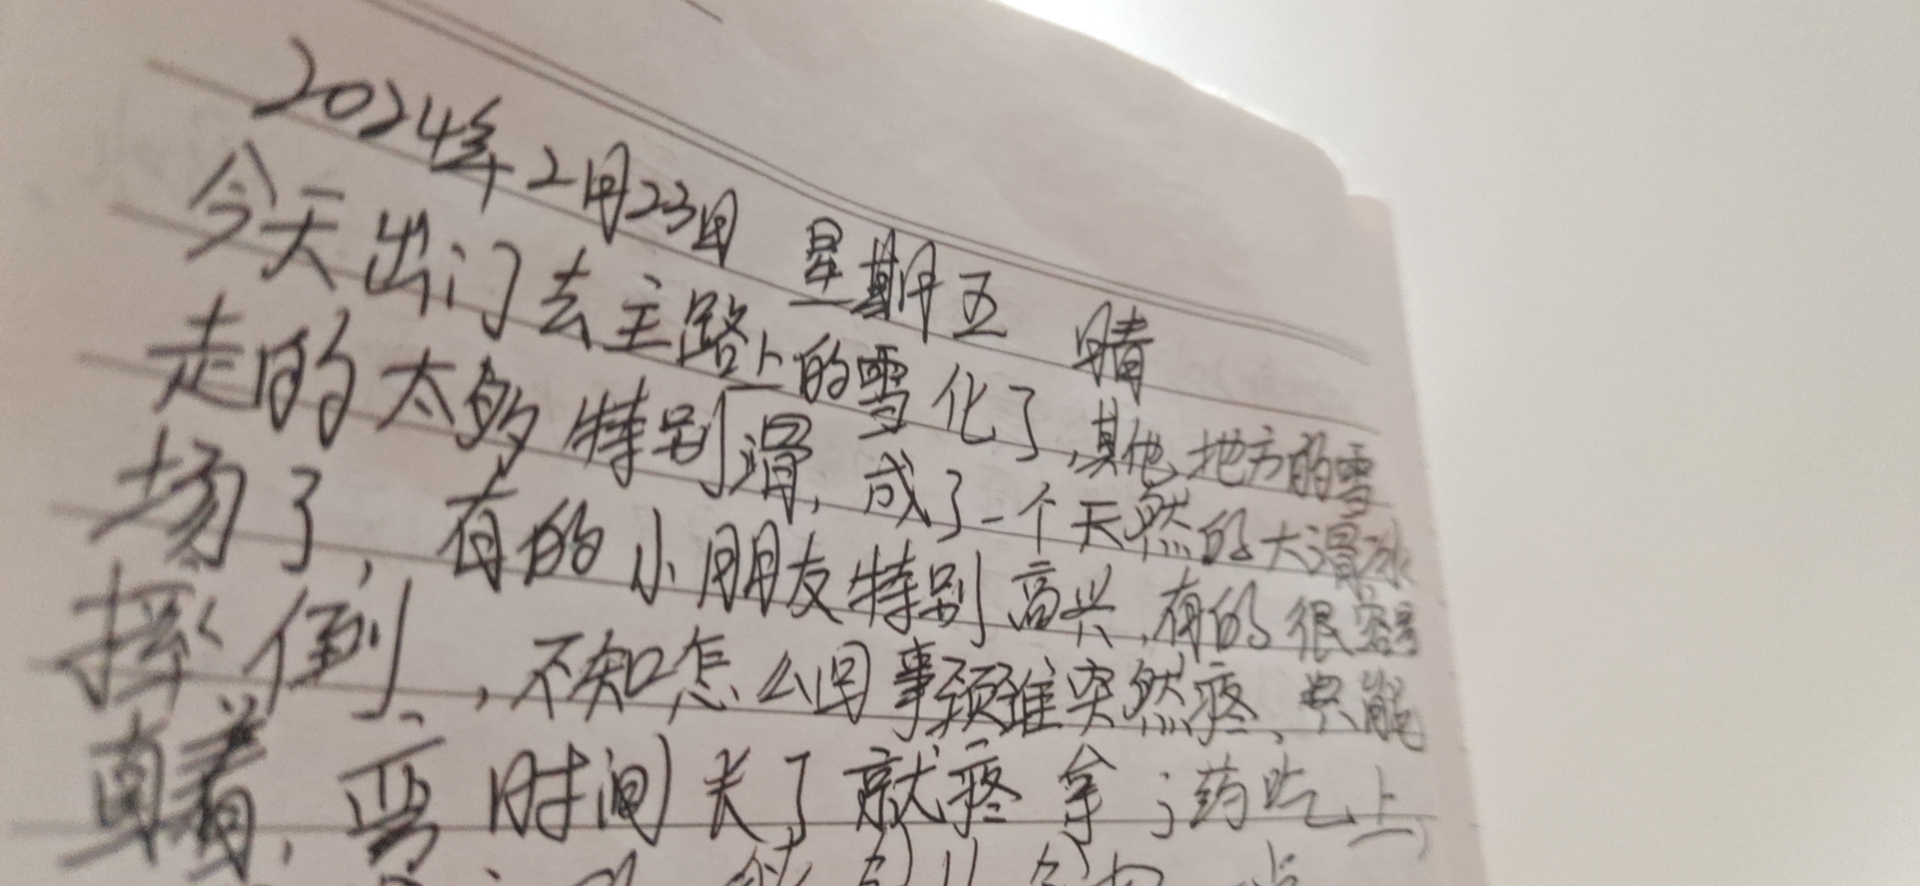 2024年2月23日 星期五 晴
今天出门去主路上的雪化了,其他地方的雪
走的太多特别滑,成了一个天然的大滑冰
场了,有的小朋友特别高兴,有的很容易
摔倒,不知怎么回事颈锥突然疼,只能
直着,弯时间长了就疼拿了药吃上,